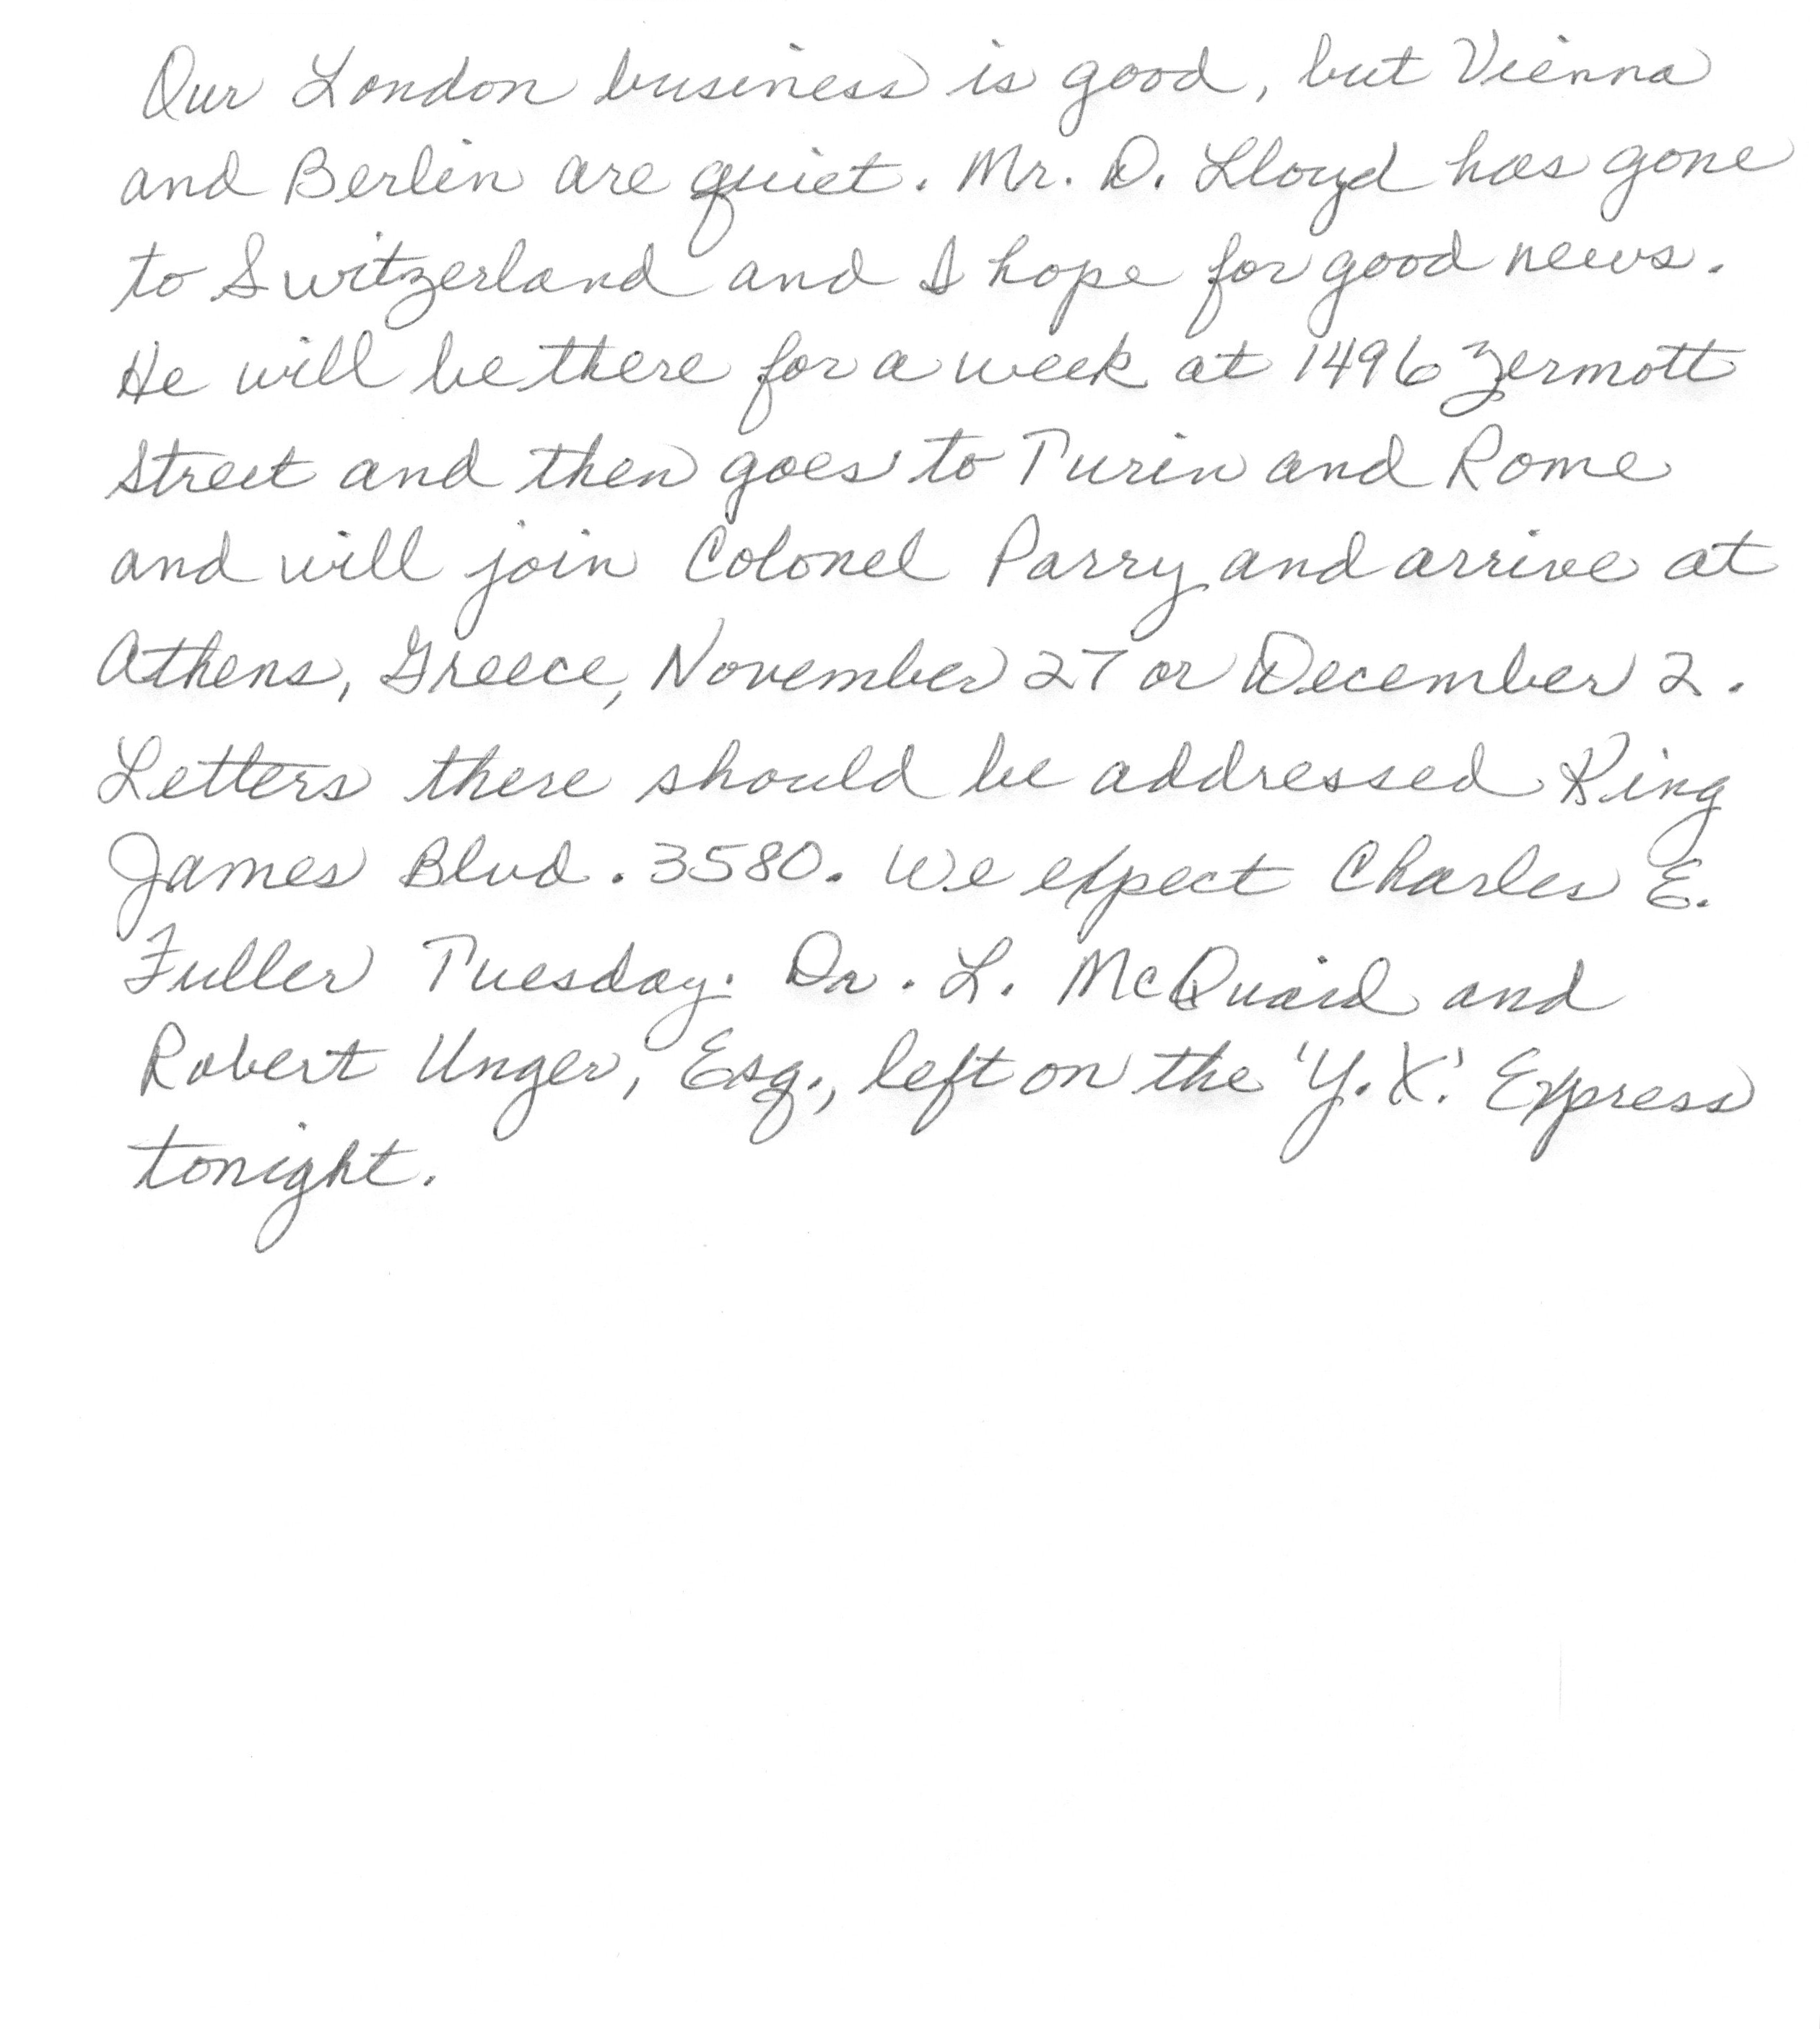 Our London business is good, but Vienna
and Berlin are quiet. Mr. D. Lloyd has gone
to Switzerland and I hope for good news.
He will be there for a week at 1496 Zermott
Street and then goes to Turin and Rome
and will join Colonel Parry and arrive at
Athens, Greece, November 27 or December 2.
Letters there should be addressed King
James Blvd. 3580. We expect Charles E.
Fuller Tuesday. Dr. L. McQuaid and
Robert Unger, Esq., left on the 'Y.X.' Express
tonight.